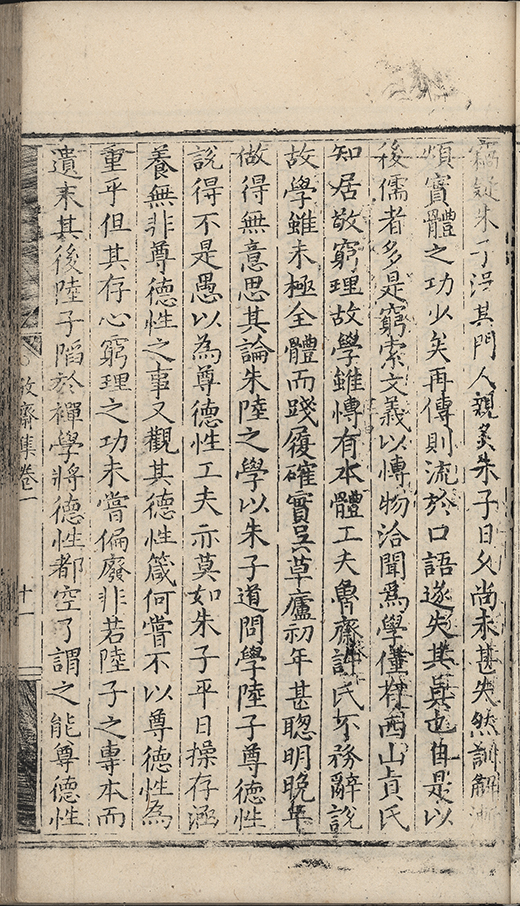 竊疑朱子沒其門人親炙朱子日久尚未甚失然訓解
煩實體之功少矣再傳則流於口語遂失其眞也自是以
後儒者多是窮索文義以博物洽聞爲學僅有西山真氏
知居敬窮理故學雖博有本體工夫魯齋許氏不務辭說
故學雖未極全體而踐履確實吳草廬初年甚聰明晚年
做得無意思其論朱陸之學以朱子道問學陸子尊德性
說得不是愚以為尊德性工夫亦莫如朱子平日操存涵
養無非尊德性之事又觀其德性箴何嘗不以尊德性為
重乎但其存心窮理之功未嘗偏廢非若陸子之專本而
遺末其後陸子陷於禪學將德性都空了謂之能尊德性
敬齋集卷一
十一